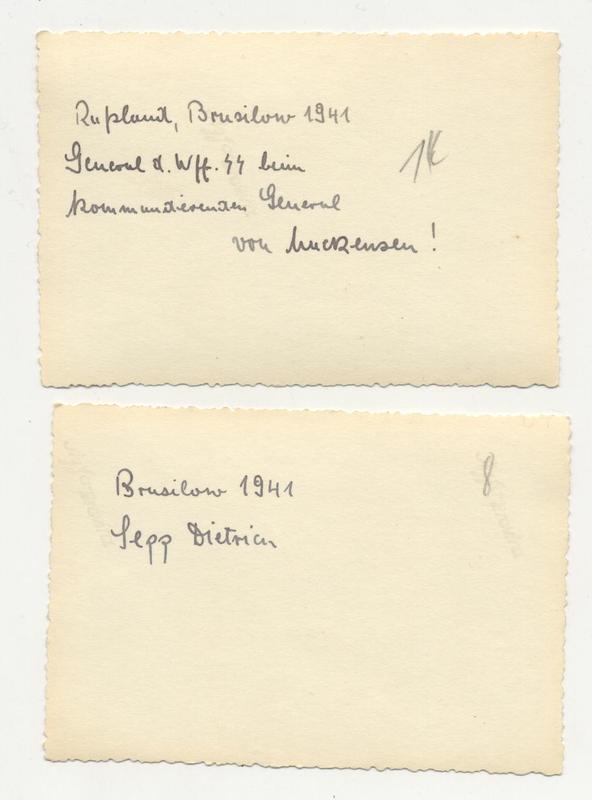 Rußland, Brusilow 1941
General d. Wff. SS beim
kommandierenden General
von Mackensen!
Brusilow 1941
8
Sepp Dietrich